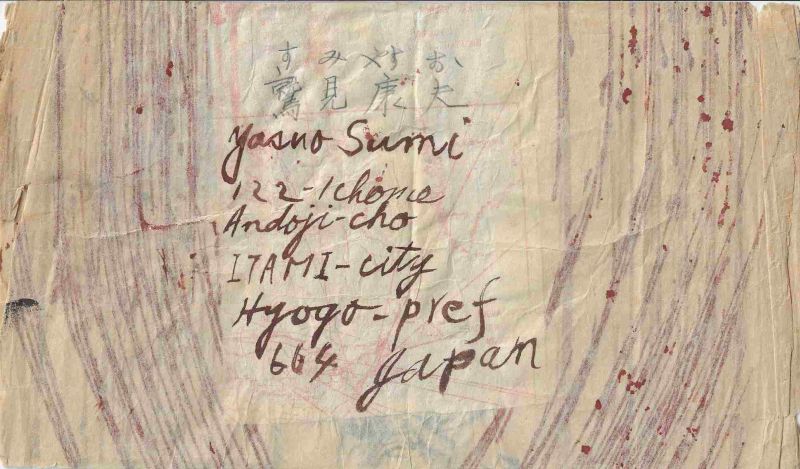 すみやすお
鷲見康夫
Yasuo Sumi
122-1chome
Andoji-cho
ITAMI-city
Hyogo-pref
664 Japan